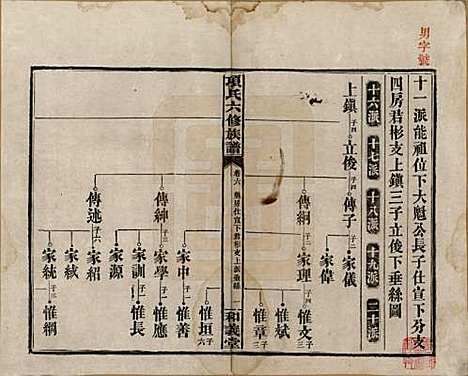 男字號
十一派能祖位下大魁公長子仕宣下分支
四房君彬支上鎮三子立俊下垂絲圖
十六派 十七派 十八派 十九派 二十派
上鎮 子四 立俊 子四 傳子 子二 家儀
家偉
傳綱 子二 家理 子三 惟文 子三
惟斌
惟章 子三
項氏六修族譜
卷六
一 和義堂
惟垣 子
傳紳 子三 家中 惟善
家學 子二 惟應
家訓 子一 惟長
家源
傳述 子六 家紹
家絨
家統 子三 惟綱